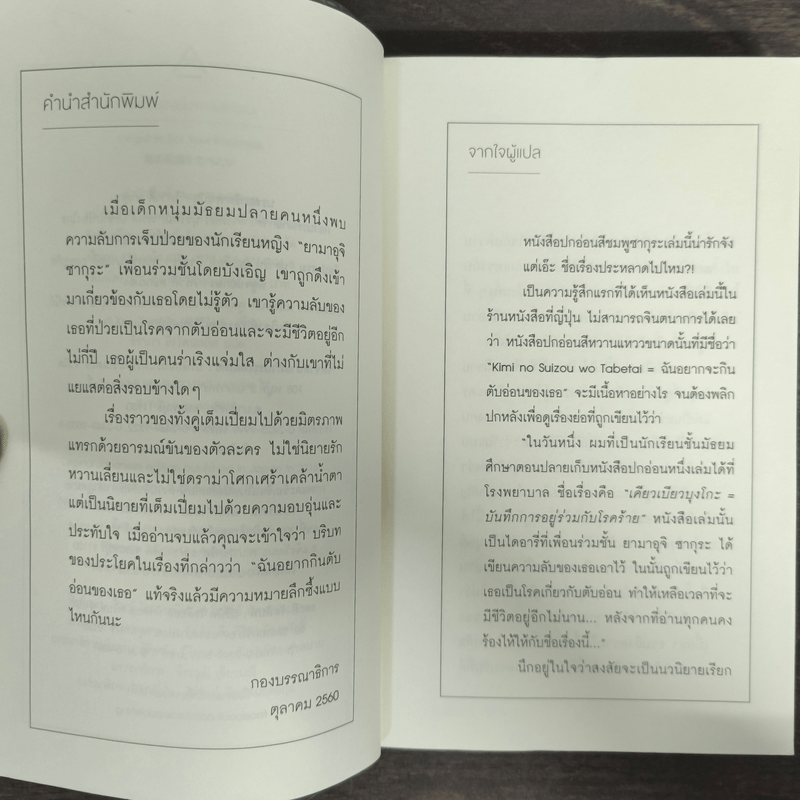 คำนำสำนักพิมพ์
เมื่อเด็กหนุ่มมัธยมปลายคนหนึ่งพบ
ความลับการเจ็บป่วยของนักเรียนหญิง “ยามาอุจิ
ซากุระ” เพื่อนร่วมชั้นโดยบังเอิญ เขาถูกดึงเข้า
มาเกี่ยวข้องกับเธอโดยไม่รู้ตัว เขารู้ความลับของ
เธอที่ป่วยเป็นโรคจากตับอ่อนและจะมีชีวิตอยู่อีก
ไม่กี่ปี เธอผู้เป็นคนร่าเริงแจ่มใส ต่างกับเขาที่ไม่
แยแสต่อสิ่งรอบข้างใด ๆ
เรื่องราวของทั้งคู่เต็มเปี่ยมไปด้วยมิตรภาพ
แทรกด้วยอารมณ์ขันของตัวละคร ไม่ใช่นิยายรัก
หวานเลี่ยนและไม่ใช่ดราม่าโศกเศร้าเคล้าน้ำตา
แต่เป็นนิยายที่เต็มเปี่ยมไปด้วยความอบอุ่นและ
ประทับใจ เมื่ออ่านจบแล้วคุณจะเข้าใจว่า บริบท
ของประโยคในเรื่องที่กล่าวว่า “ฉันอยากกินตับ
อ่อนของเธอ” แท้จริงแล้วมีความหมายลึกซึ้งแบบ
ไหนกันนะ
กองบรรณาธิการ
ตุลาคม 2560
จากใจผู้แปล
หนังสือปกอ่อนสีชมพูซากุระเล่มนี้น่ารักจัง
แต่เอ๊ะ ชื่อเรื่องประหลาดไปไหม?!
เป็นความรู้สึกแรกที่ได้เห็นหนังสือเล่มนี้ใน
ร้านหนังสือที่ญี่ปุ่น ไม่สามารถจินตนาการได้เลย
ว่า หนังสือปกอ่อนสีหวานแหววขนาดนั้นที่มีชื่อว่า
“Kimi no Suizou wo Tabetai = ฉันอยากจะกิน
ตับอ่อนของเธอ” จะมีเนื้อหาอย่างไร จนต้องพลิก
ปกหลังเพื่อดูเรื่องย่อที่ถูกเขียนไว้ว่า
“ในวันหนึ่ง ผมที่เป็นนักเรียนชั้นมัธยม
ศึกษาตอนปลายเก็บหนังสือปกอ่อนหนึ่งเล่มได้ที่
โรงพยาบาล ชื่อเรื่องคือ “เคียวเบียวบุงโกะ =
บันทึกการอยู่ร่วมกับโรคร้าย” หนังสือเล่มนั้น
เป็นไดอารี่ที่เพื่อนร่วมชั้น ยามาอุจิ ซากุระ ได้
เขียนความลับของเธอเอาไว้ ในนั้นถูกเขียนไว้ว่า
เธอเป็นโรคเกี่ยวกับตับอ่อน ทำให้เหลือเวลาที่จะ
มีชีวิตอยู่อีกไม่นาน... หลังจากที่อ่านทุกคนคง
ร้องไห้ให้กับชื่อเรื่องนี้...”
นึกอยู่ในใจว่าสงสัยจะเป็นนวนิยายเรียก